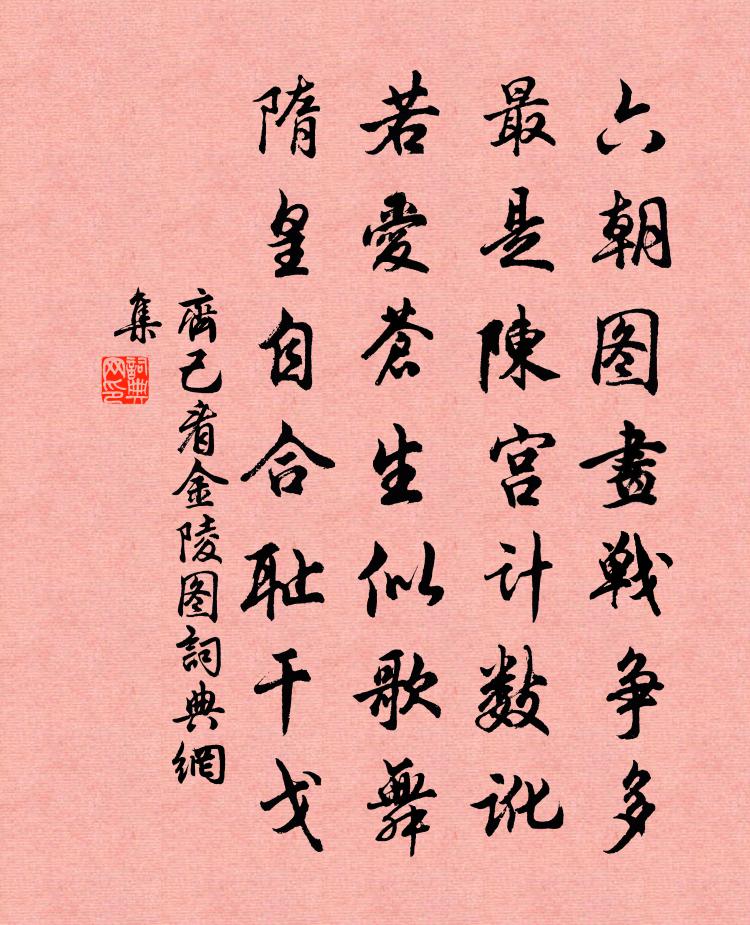 六朝图畫戰争多
最是陳宫计數訛
若愛蒼生似歌舞
隋皇自合耻干戈
齊己看金陵图詞典網
集
詞典网印